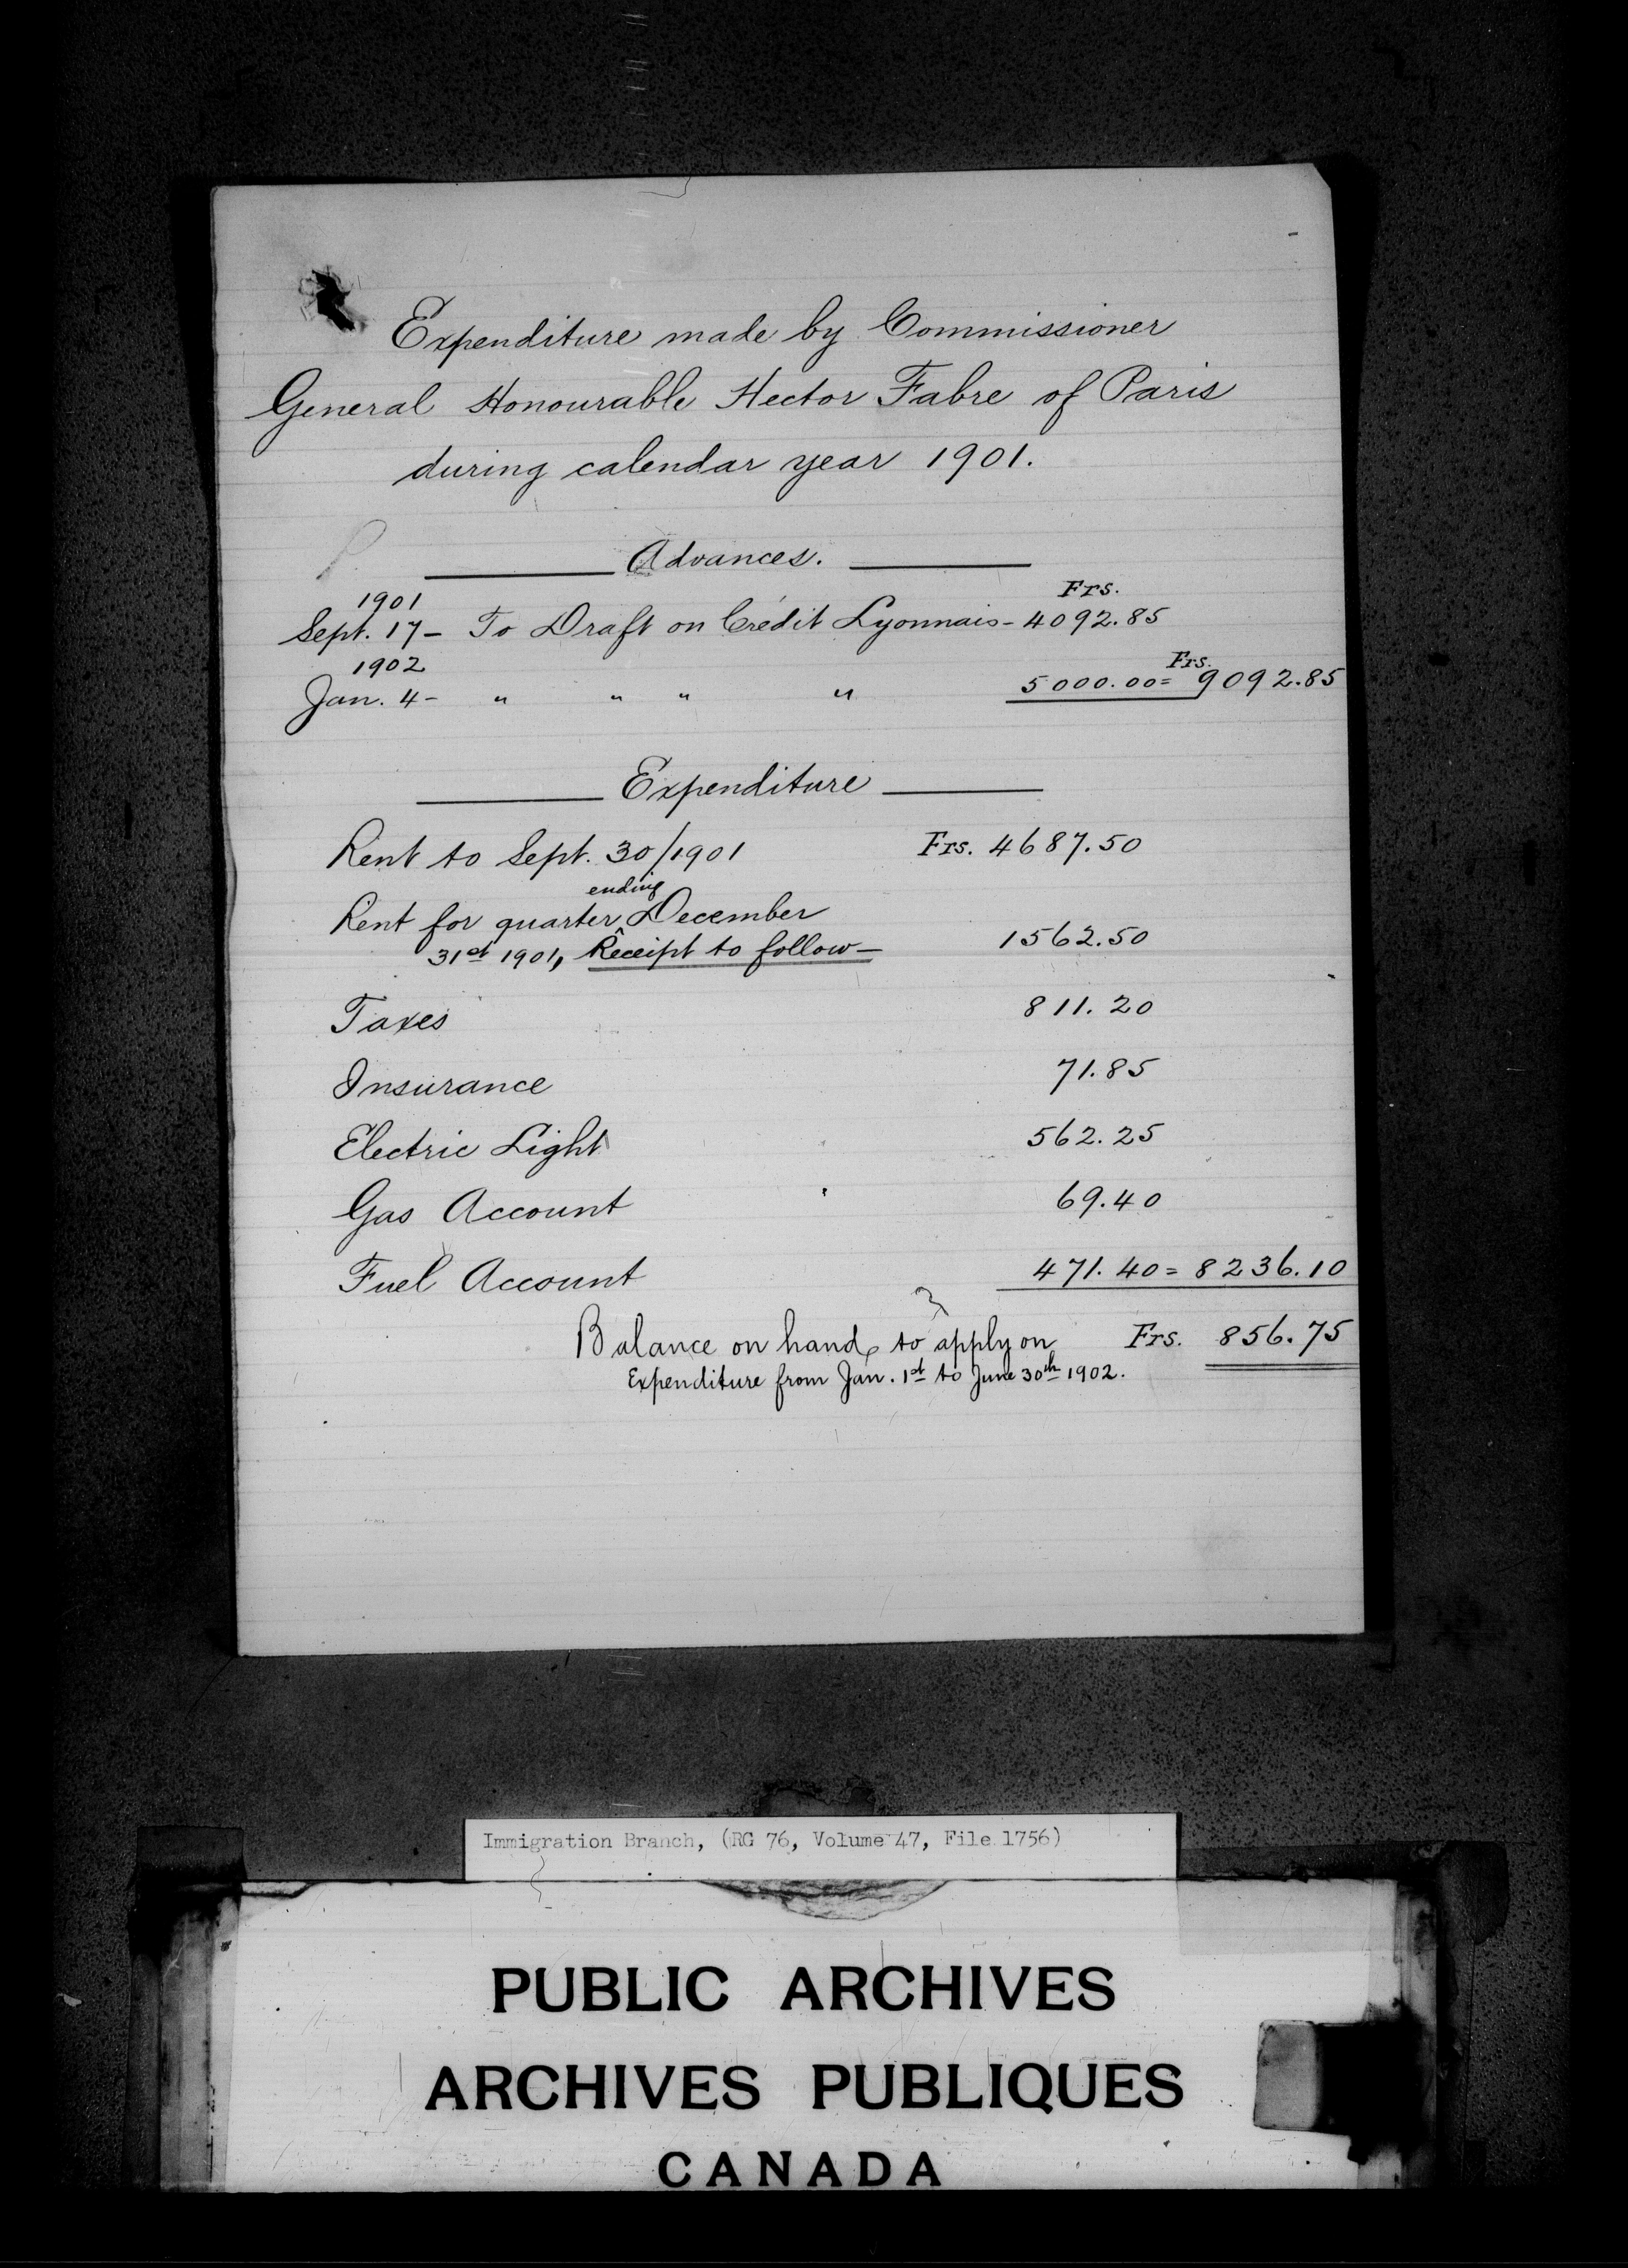 Expenditure made by Commissioner
General Honourable Hector Fabre of Paris
during calendar year 1901.
Advances.
1901 Frs.
Sept. 17 - To Draft on Crédit Lyonnais - 4092.85
1902 Frs.
Jan. 4 - " " " " 5000.00 = 9092.85
Expenditure
Rent to Sept. 30/1901 Frs. 4687.50
ending
Rent for quarter ^ December
31st 1901, Receipt to follow - 1562.50
Taxes 811.20
Insurance 71.85
Electric Light 562.25
Gas Account 69.40
Fuel Account 471.40 = 8236.10
Balance on hand, to apply on Frs. 856.75
Expenditure from Jan. 1st to June 30th 1902.
Immigration Branch, (RG 76, Volume 47, File 1756)
PUBLIC ARCHIVES
ARCHIVES PUBLIQUES
CANADA